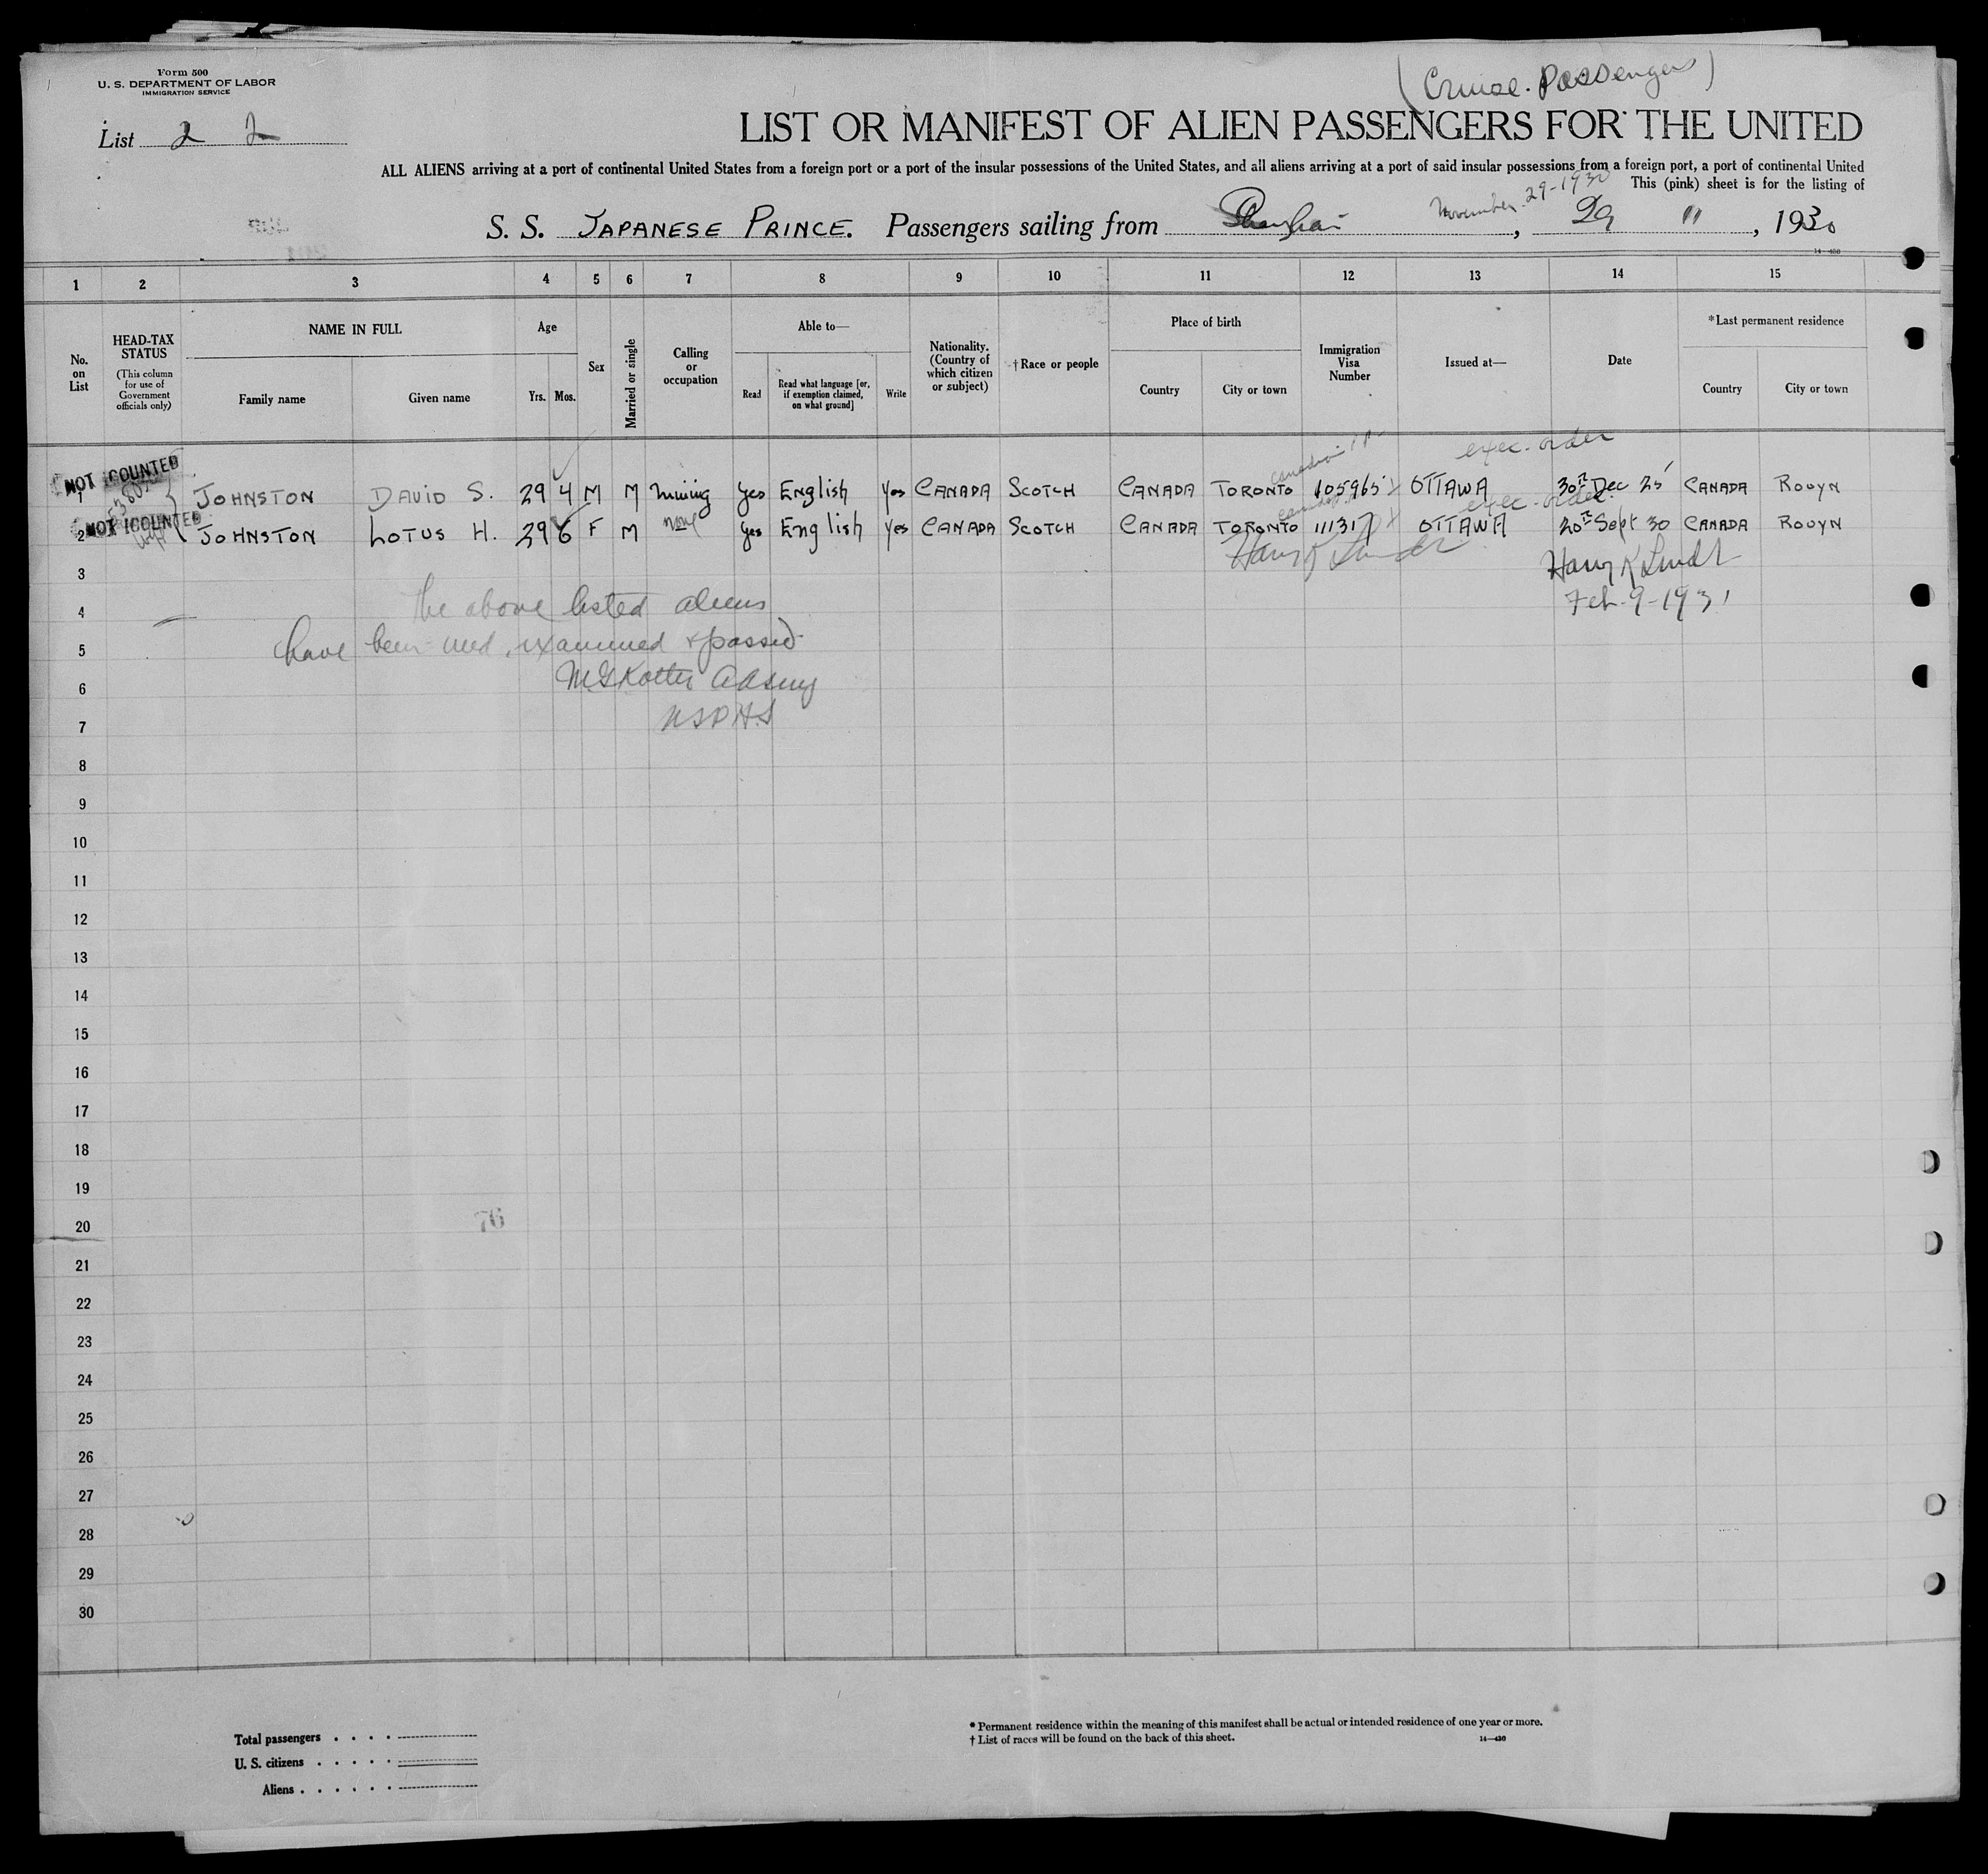 Form 500
U. S. DEPARTMENT OF LABOR
IMMIGRATION SERVICE
(Cruise. Passengers)
List 2 2
LIST OR MANIFEST OF ALIEN PASSENGERS FOR THE UNITED
ALL ALIENS arriving at a port of continental United States from a foreign port or a port of the insular possessions of the United States, and all aliens arriving at a port of said insular possessions from a foreign port, a port of continental United
This (pink) sheet is for the listing of
November. 29-1930
S. S. JAPANESE PRINCE. Passengers sailing from Shanghai, 29 " , 1930
14—430
1 2 3 4 5 6 7 8 9 10 11 12 13 14 15
No. on List
HEAD-TAX STATUS
(This column for use of Government officials only)
NAME IN FULL
Family name
Given name
Age
Yrs. Mos.
Sex
Married or single
Calling or occupation
Able to—
Read
Read what language [or, if exemption claimed, on what ground]
Write
Nationality. (Country of which citizen or subject)
†Race or people
Place of birth
Country
City or town
Immigration Visa Number
Issued at—
Date
*Last permanent residence
Country
City or town
NOT COUNTED
exec. order
1 JOHNSTON DAVID S. 29 4 M M Mining Yes English Yes CANADA SCOTCH CANADA TORONTO 105965 OTTAWA 30th Dec 25 CANADA ROUYN
NOT COUNTED
exec. order
2 JOHNSTON LOTUS H. 29 6 F M none Yes English Yes CANADA SCOTCH CANADA TORONTO 111317 OTTAWA 20th Sept 30 CANADA ROUYN
3
4
5
6
7
8
9
10
11
12
13
14
15
16
17
18
19
20
21
22
23
24
25
26
27
28
29
30
Feb. 9-1931
the above listed aliens
have been med. examined & passed
USPHS
76
Total passengers
U. S. citizens
Aliens
* Permanent residence within the meaning of this manifest shall be actual or intended residence of one year or more.
† List of races will be found on the back of this sheet.
14—430